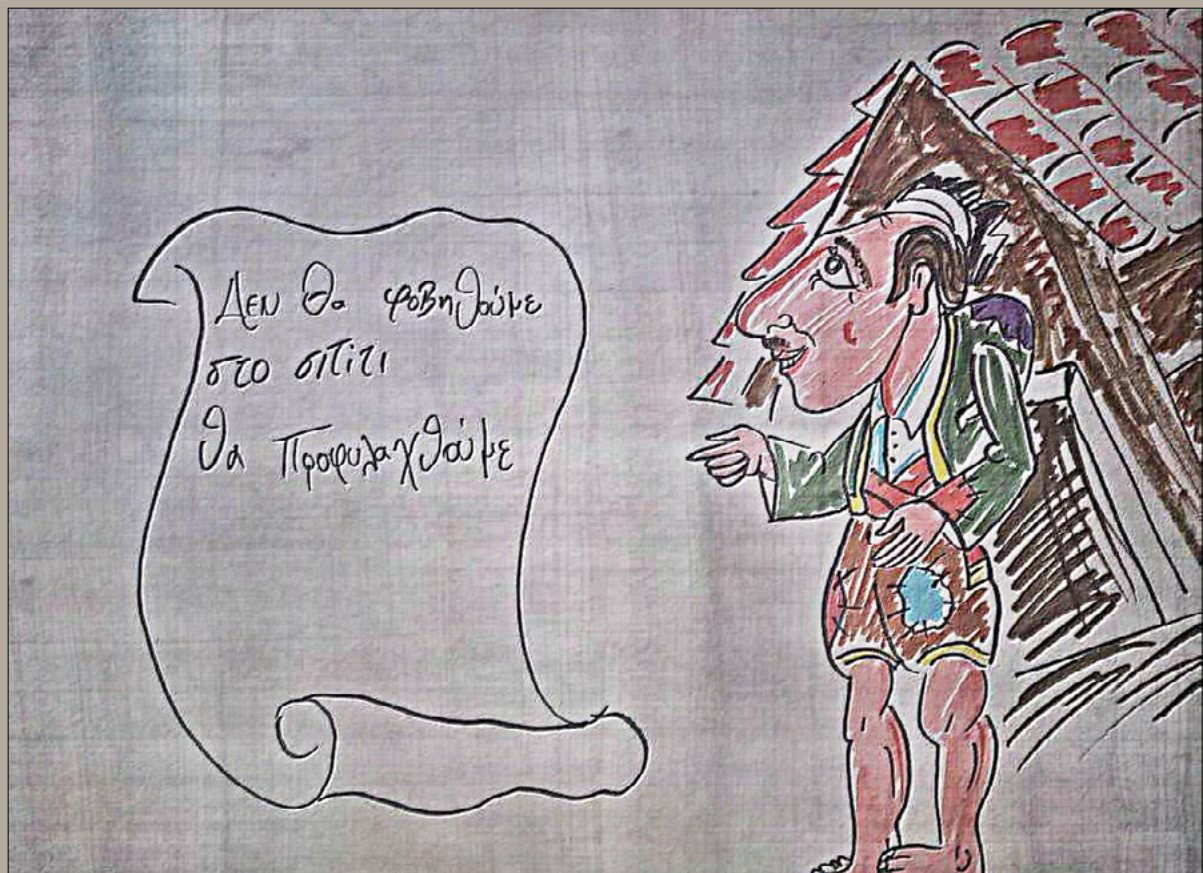 Δεν θα φοβηθούμε
στο σπίτι
θα προφυλαχθούμε